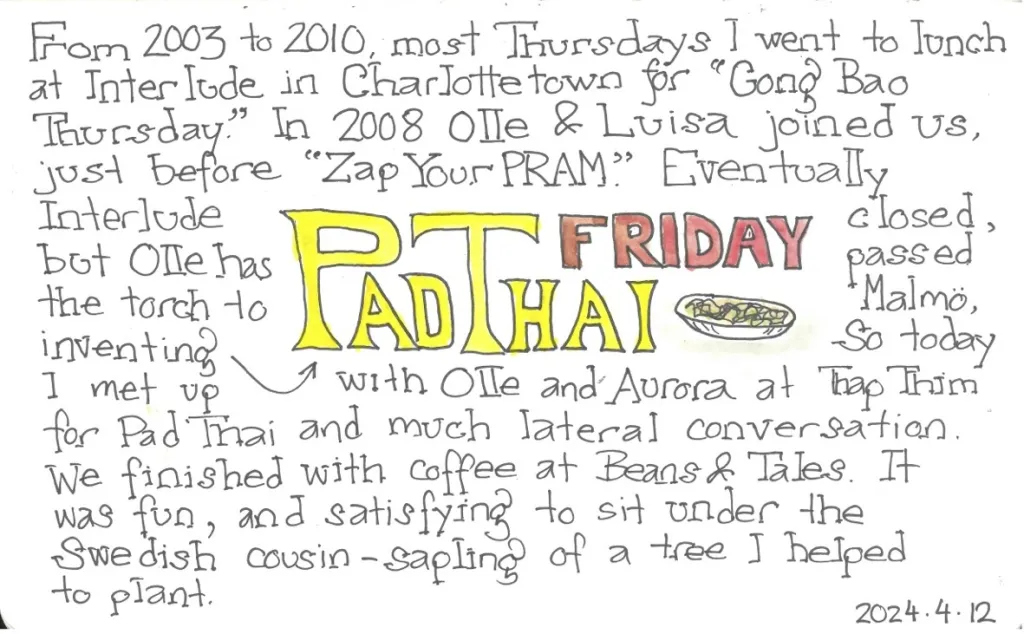 From 2003 to 2010, most Thursdays I went to lunch
at Interlude in Charlottetown for "Gong Bao
Thursday." In 2008 Olle & Luisa joined us,
just before "Zap Your PRAM." Eventually
Interlude closed,
but Olle has passed
the torch to Malmö,
inventing So today
PAD THAI FRIDAY
I met up with Olle and Aurora at Thap Thim
for Pad Thai and much lateral conversation.
We finished with coffee at Beans & Tales. It
was fun, and satisfying to sit under the
Swedish cousin-sapling of a tree I helped
to plant.
2024.4.12